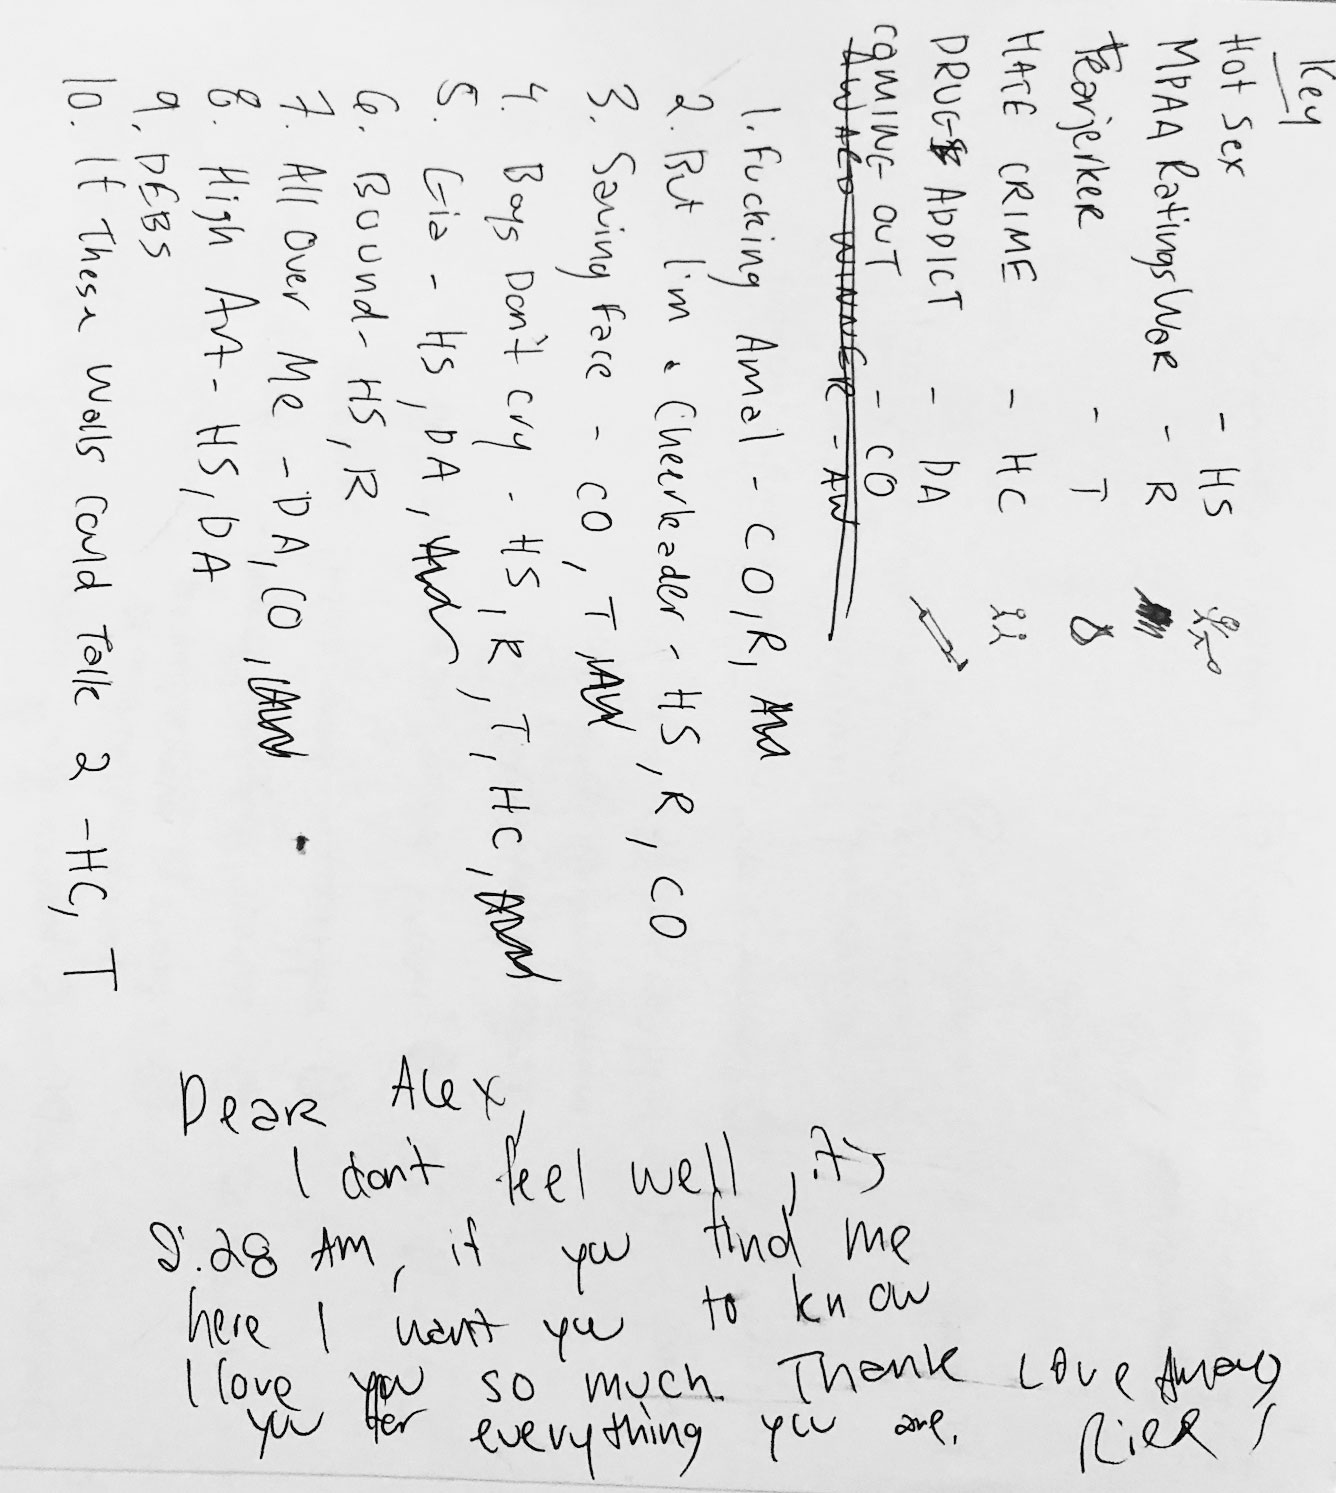 Key
Hot Sex - HS
MPAA Ratings War - R
Tearjerker - T
HATE CRIME - HC
DRUG ADDICT - DA
COMING OUT - CO
AWARD WINNER - AW
1. Fucking Amal - CO, R, AW
2. But I'm a Cheerleader - HS, R, CO
3. Saving Face - CO, T, AW
4. Boys Don't Cry - HS, R, T, HC, AW
5. Gia - HS, DA, AW
6. Bound - HS, R
7. All Over Me - DA, CO, AW
8. High Art - HS, DA
9. DEBS
10. If These Walls Could Talk 2 - HC, T
Dear Alex,
I don't feel well, it's
2:28 AM, if you find me
here I want you to know
I love you so much. Thank
you for everything you are.
Love Always